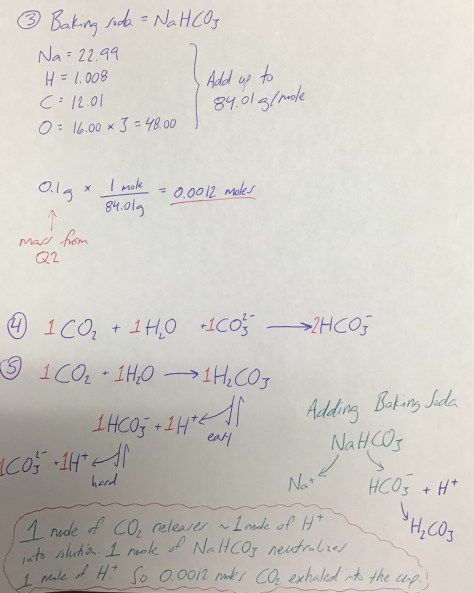 ③ Baking soda = NaHCO₃
Na = 22.99
H = 1.008
C = 12.01
O = 16.00 × 3 = 48.00
Add up to
84.01 g/mole
0.1g × 1 mole / 84.01g = 0.0012 moles
mass from
Q2
④ 1CO₂ + 1H₂O + 1CO₃²⁻ → 2HCO₃⁻
⑤ 1CO₂ + 1H₂O → 1H₂CO₃
1HCO₃⁻ + 1H⁺
easy
1CO₃²⁻ + 1H⁺
hard
Adding Baking Soda
NaHCO₃
Na⁺
HCO₃⁻ + H⁺
H₂CO₃
1 mole of CO₂ releases ~1 mole of H⁺
into solution. 1 mole of NaHCO₃ neutralizes
1 mole of H⁺. So 0.0012 moles CO₂ exhaled into the cup.